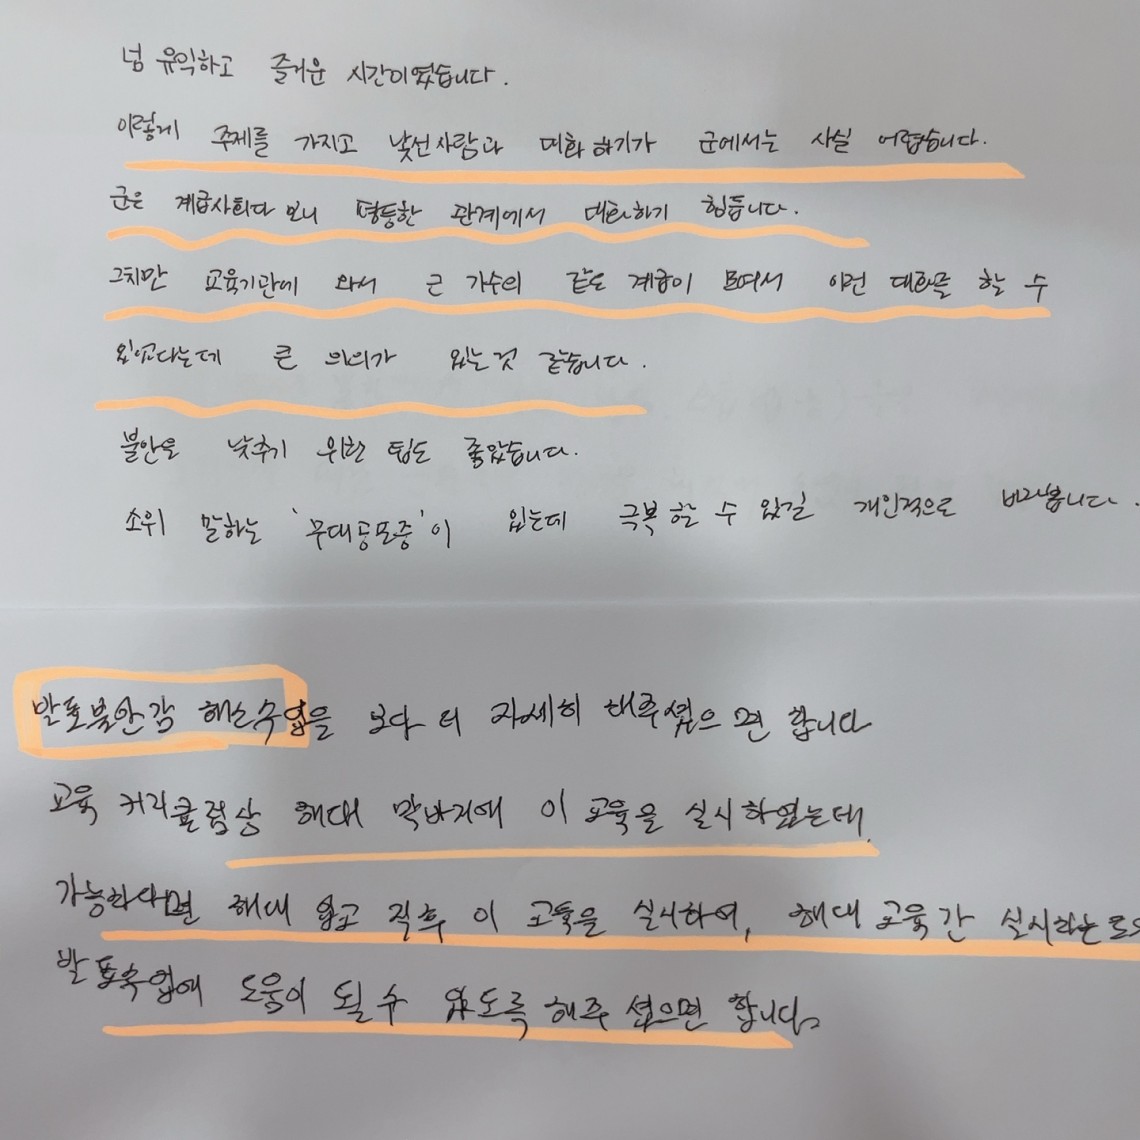 넘 유익하고 즐거운 시간이였습니다.
이렇게 주제를 가지고 낯선사람과 대화하기가 군에서는 사실 어렵습니다.
군은 계급사회다 보니 평등한 관계에서 대화하기 힘듭니다.
그치만 교육기관에 와서 근 가수의 같은 계급이 모여서 이런 대화를 할 수
있었다는데 큰 의의가 있는것 같습니다.
불안을 낮추기 위한 팁도 좋았습니다.
소위 말하는 '무대공포증'이 있는데 극복할 수 있길 개인적으로 바래봅니다.
발표불안감 해소수업을 보다 더 자세히 해주셨으면 합니다
교육 커리큘럼상 해대 막바지에 이 교육을 실시하였는데,
가능하다면 해대 입교 직후 이 교육을 실시하여, 해대 교육간 실시하는
발표수업에 도움이 될 수 있도록 해주셨으면 합니다.